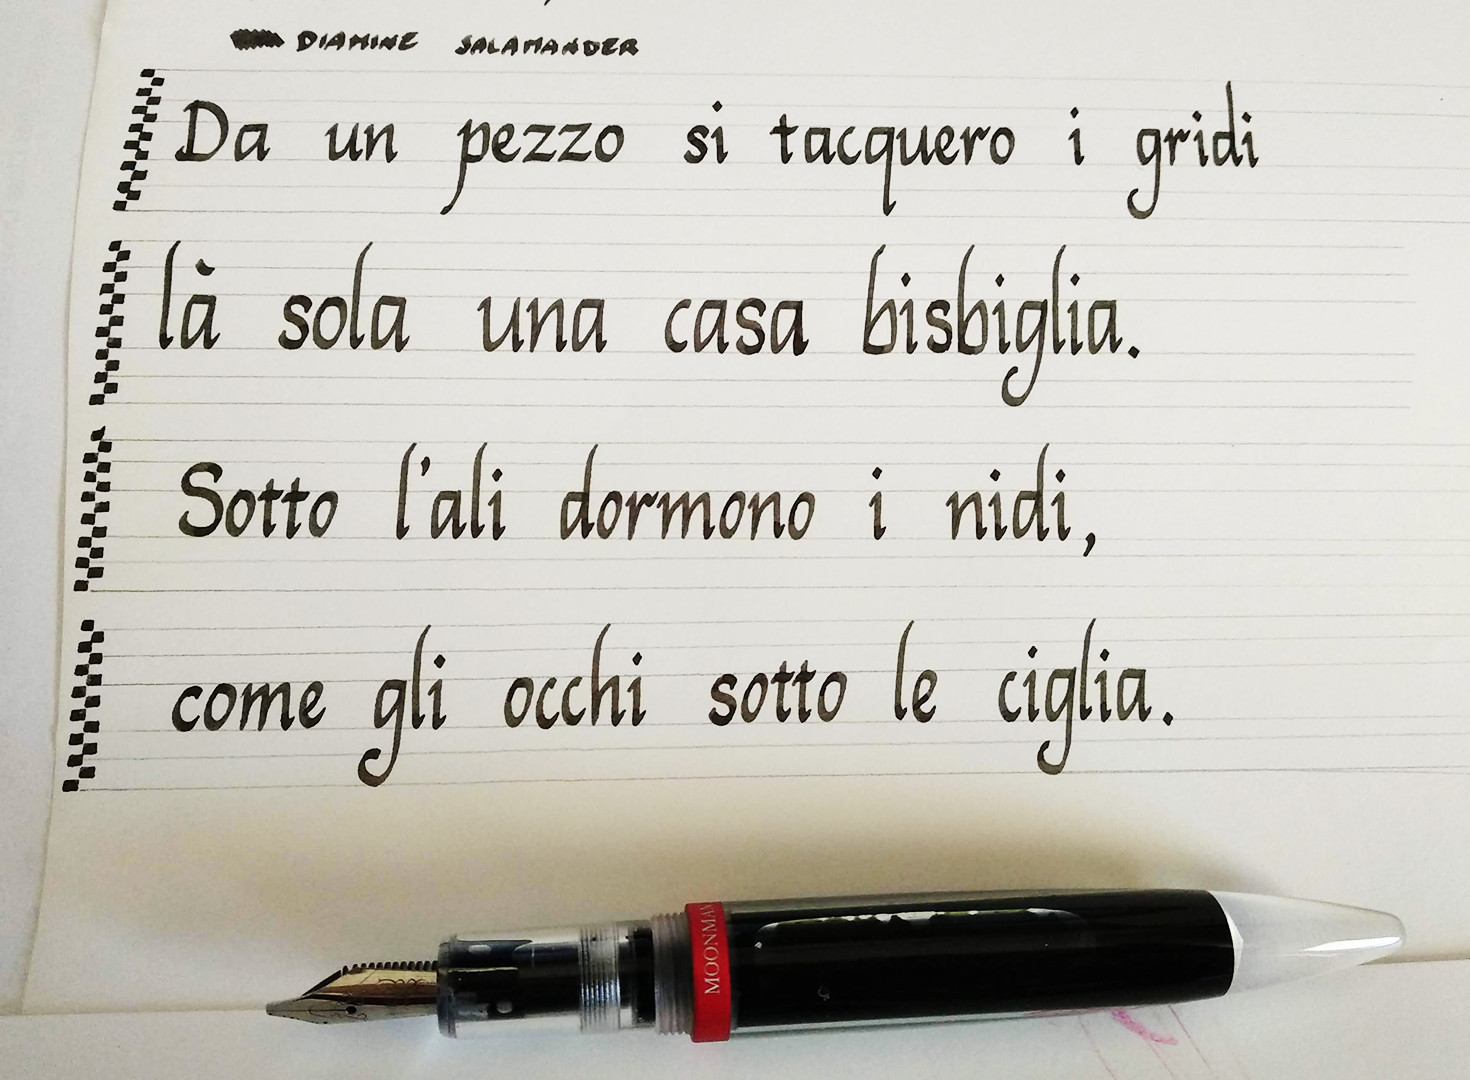 DIAMINE SALAMANDER
Da un pezzo si tacquero i gridi
là sola una casa bisbiglia.
Sotto l'ali dormono i nidi,
come gli occhi sotto le ciglia.
MOONMAN